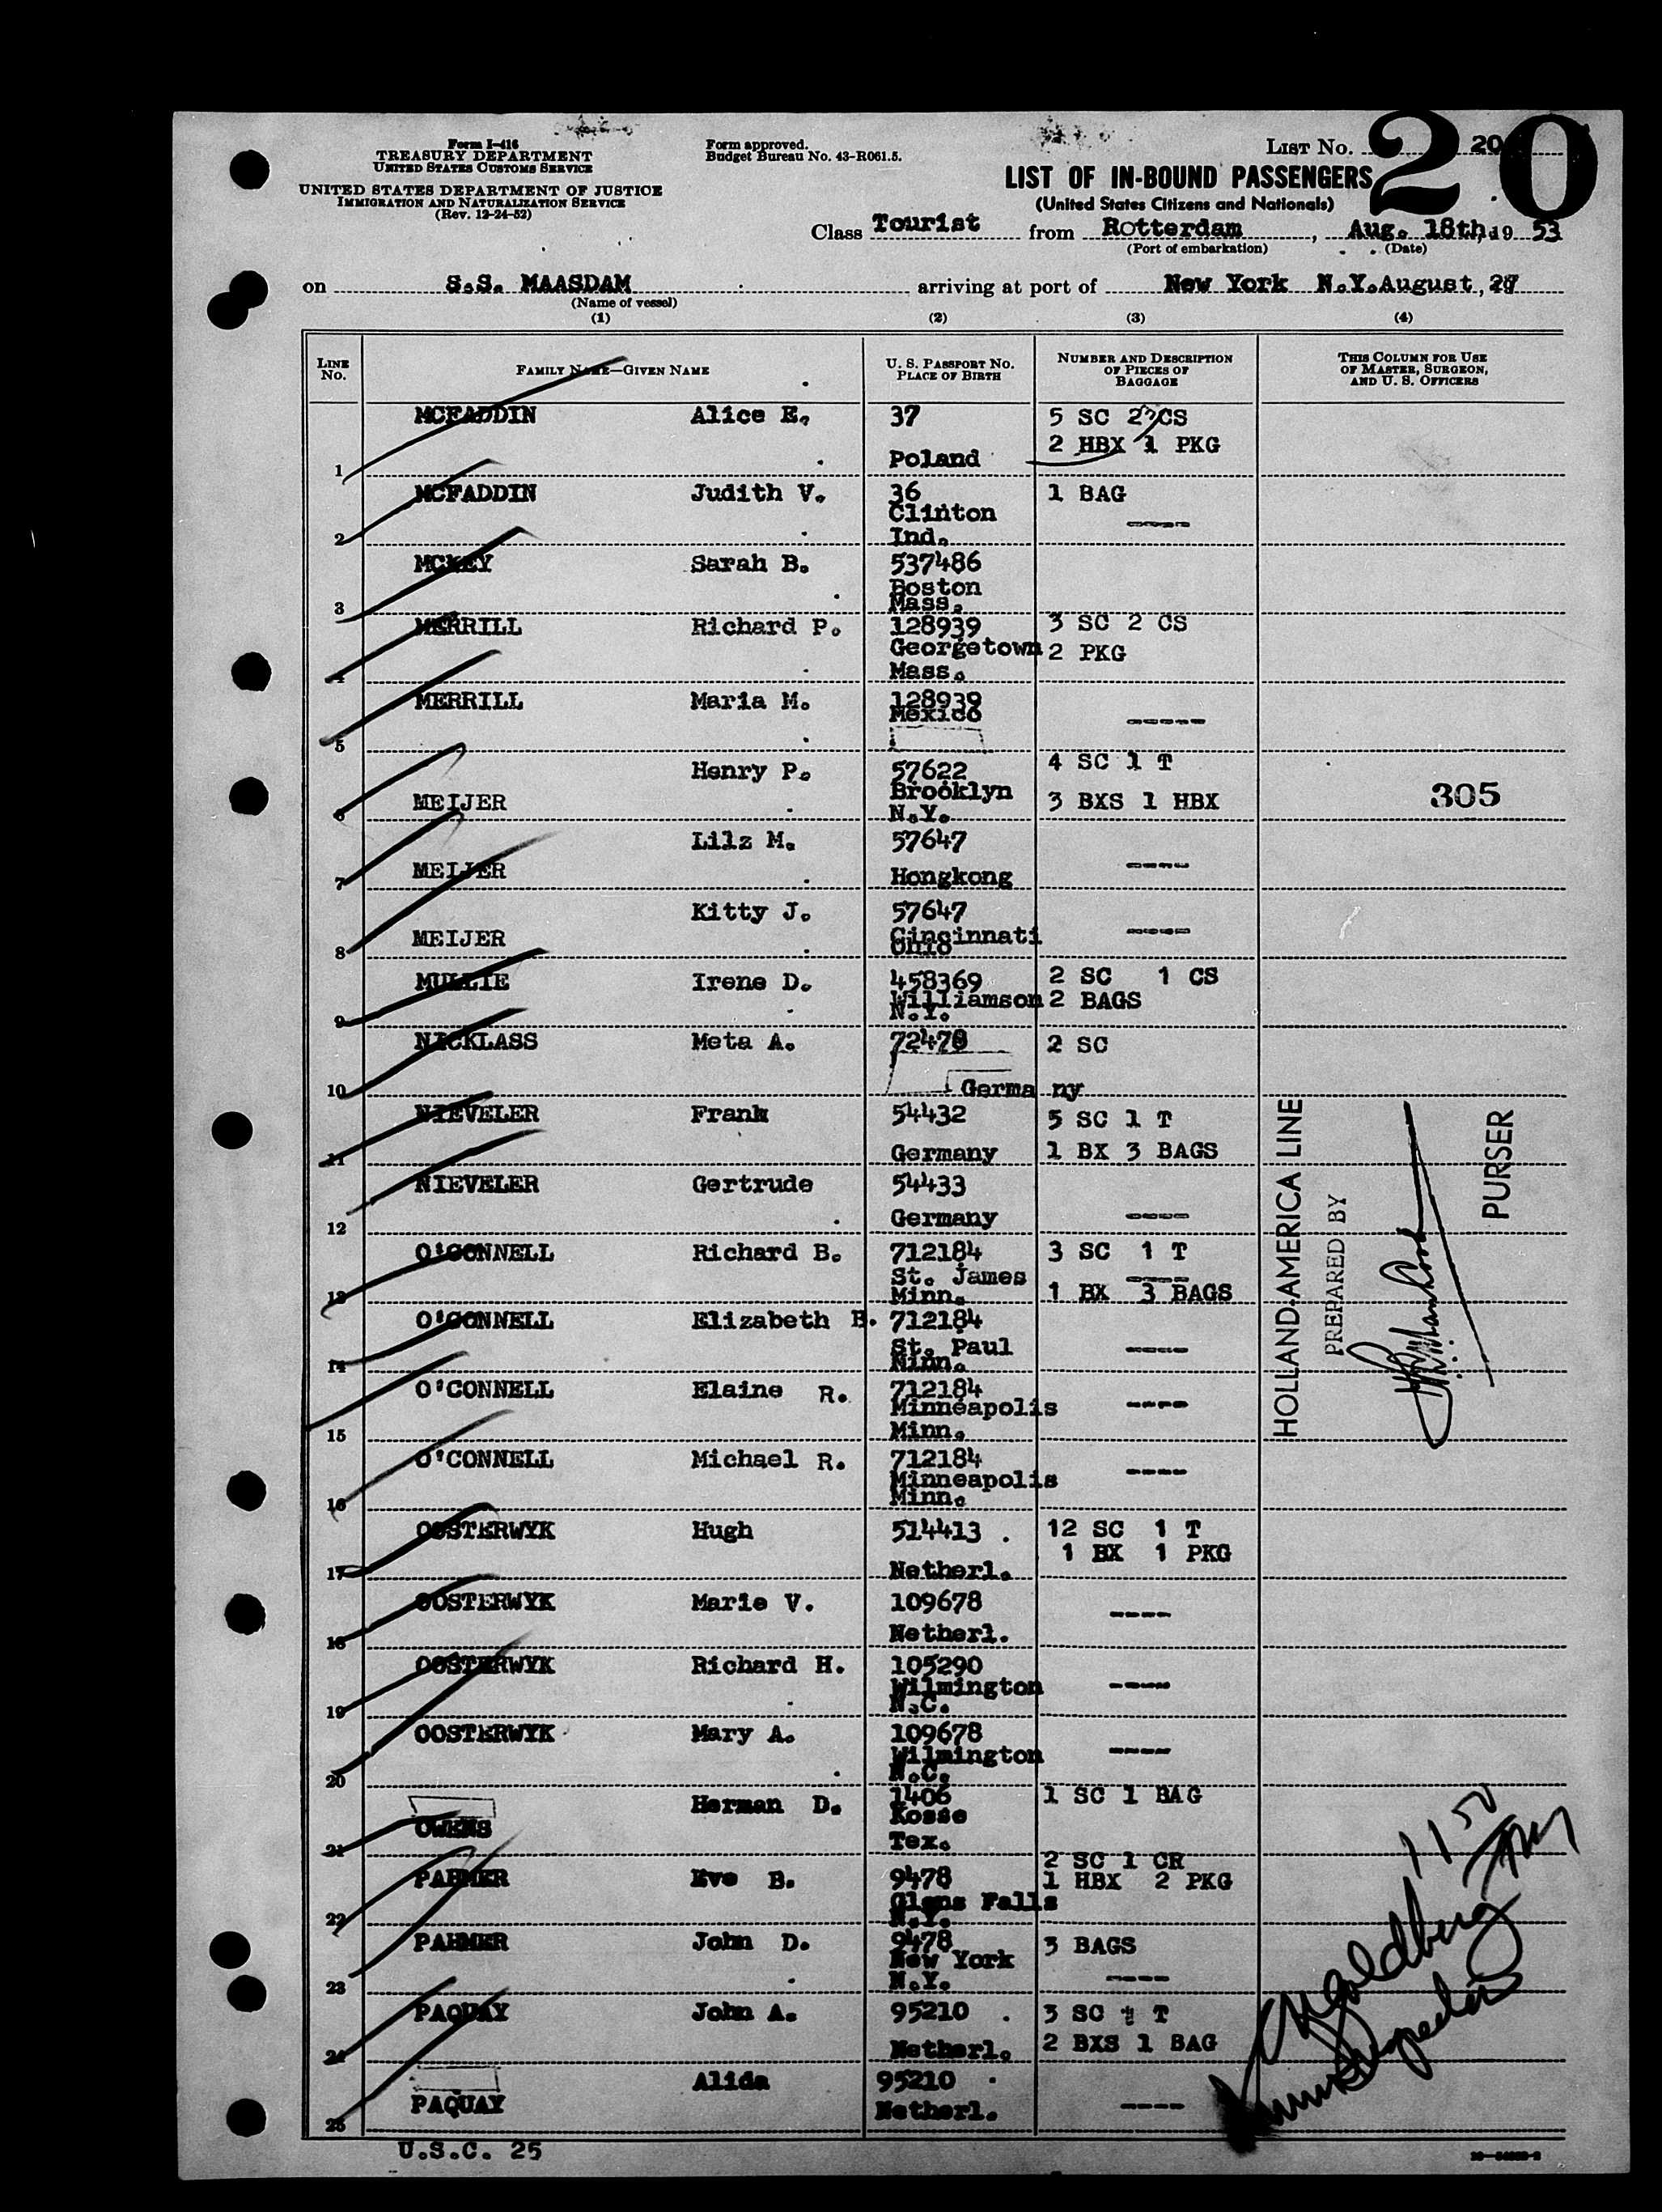 Form I-416
TREASURY DEPARTMENT
UNITED STATES CUSTOMS SERVICE
UNITED STATES DEPARTMENT OF JUSTICE
IMMIGRATION AND NATURALIZATION SERVICE
(Rev. 12-24-52)
Form approved.
Budget Bureau No. 43-R061.5.
LIST No. 20
20
LIST OF IN-BOUND PASSENGERS
(United States Citizens and Nationals)
Class Tourist from Rotterdam, Aug. 18th, 1953
(Port of embarkation) (Date)
on S.S. MAASDAM arriving at port of New York N.Y. August, 27
(Name of vessel)
(1) (2) (3) (4)
LINE No. FAMILY NAME—GIVEN NAME U. S. PASSPORT NO. PLACE OF BIRTH NUMBER AND DESCRIPTION OF PIECES OF BAGGAGE THIS COLUMN FOR USE OF MASTER, SURGEON, AND U. S. OFFICERS
MCFADDIN Alice E. 37 5 SC 2 CS
1 Poland 2 HBX 1 PKG
MCFADDIN Judith V. 36 1 BAG
Clinton ----
2 Ind.
MCKEY Sarah B. 537486
Boston
3 Mass.
MERRILL Richard P. 128939 3 SC 2 CS
Georgetown 2 PKG
4 Mass.
MERRILL Maria M. 128939
Mexico -----
5
Henry P. 57622 4 SC 1 T
MEIJER Brooklyn 3 BXS 1 HBX 305
6 N.Y.
Lilz M. 57647 ----
7 MEIJER Hongkong
Kitty J. 57647
MEIJER Cincinnati ----
8 Ohio
MULLIE Irene D. 458369 2 SC 1 CS
Williamson 2 BAGS
9 N.Y.
NICKLASS Meta A. 72478 2 SC
10 Germany
NIEVELER Frank 54432 5 SC 1 T
11 Germany 1 BX 3 BAGS
NIEVELER Gertrude 54433
12 Germany ----
O'CONNELL Richard B. 712184 3 SC 1 T
St. James ----
13 Minn. 1 BX 3 BAGS
O'CONNELL Elizabeth B. 712184
St. Paul ----
14 Minn.
O'CONNELL Elaine R. 712184
Minneapolis ----
15 Minn.
O'CONNELL Michael R. 712184
Minneapolis ----
16 Minn.
OOSTERWYK Hugh 514413 12 SC 1 T
17 Netherl. 1 BX 1 PKG
OOSTERWYK Marie V. 109678 ----
18 Netherl.
OOSTERWYK Richard H. 105290
Wilmington ----
19 N.C.
OOSTERWYK Mary A. 109678
Wilmington ----
20 N.C.
Herman D. 1406 1 SC 1 BAG
OWENS Kosse
21 Tex.
PAHMER Eve B. 9478 2 SC 1 CR
Glens Falls 1 HBX 2 PKG
22 N.Y.
PAHMER John D. 9478 3 BAGS
New York ----
23 N.Y.
PAQUAY John A. 95210 3 SC 1 T
24 Netherl. 2 BXS 1 BAG
Alida 95210
25 PAQUAY Netherl. ----
U.S.C. 25
HOLLAND-AMERICA LINE
PREPARED BY
PURSER
1150
Goldberg
Imm Inspector